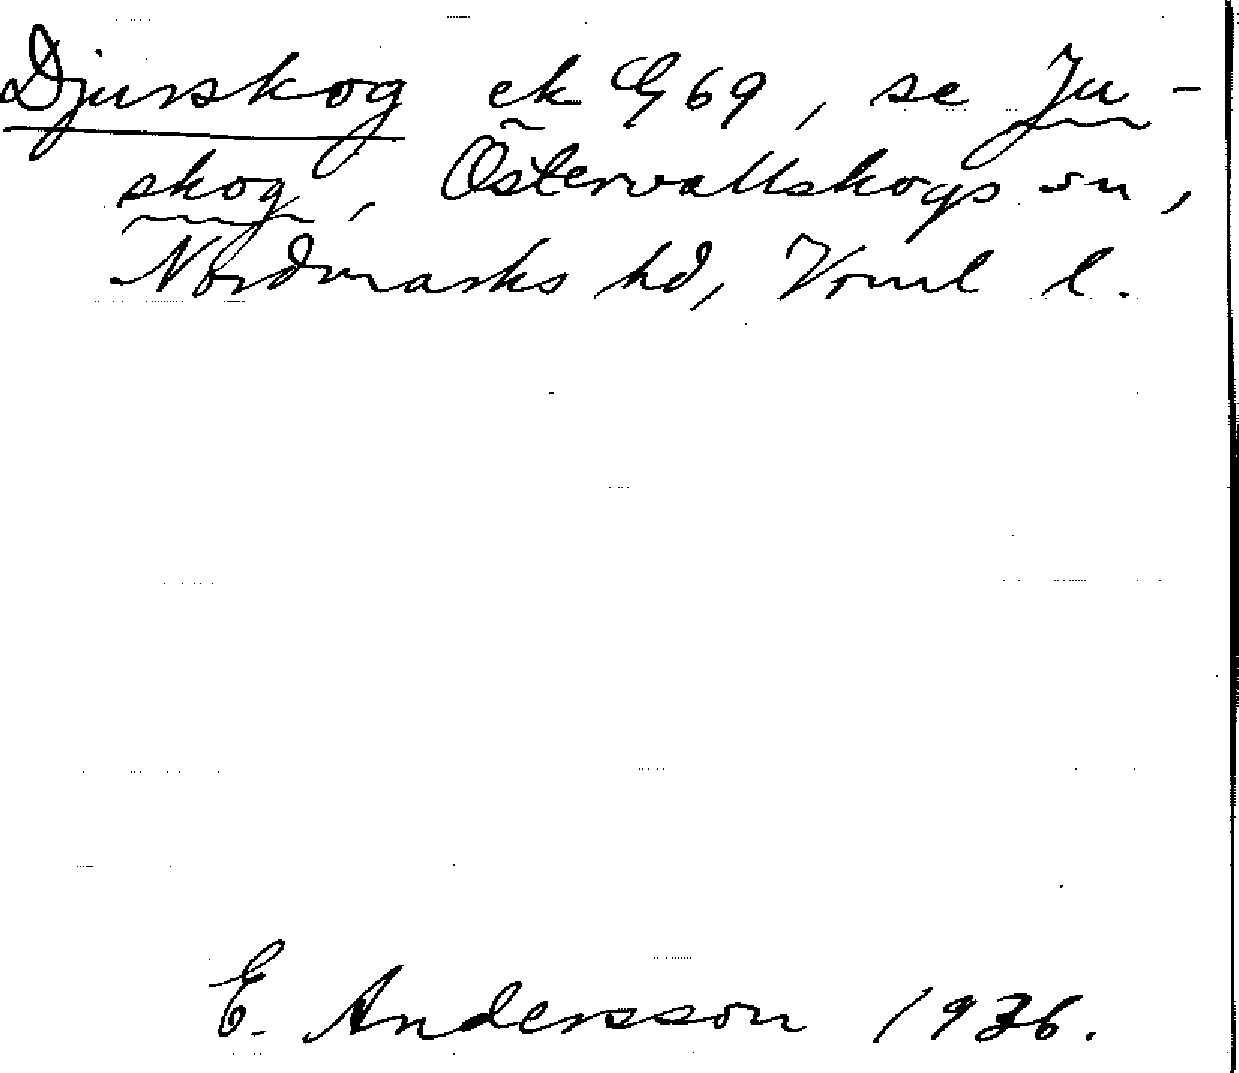 Djurskog ek G 69, se Ju-
skog, Östervallskogs sn,
Nordmarks hd, Vrml l.
E. Andersson 1936.